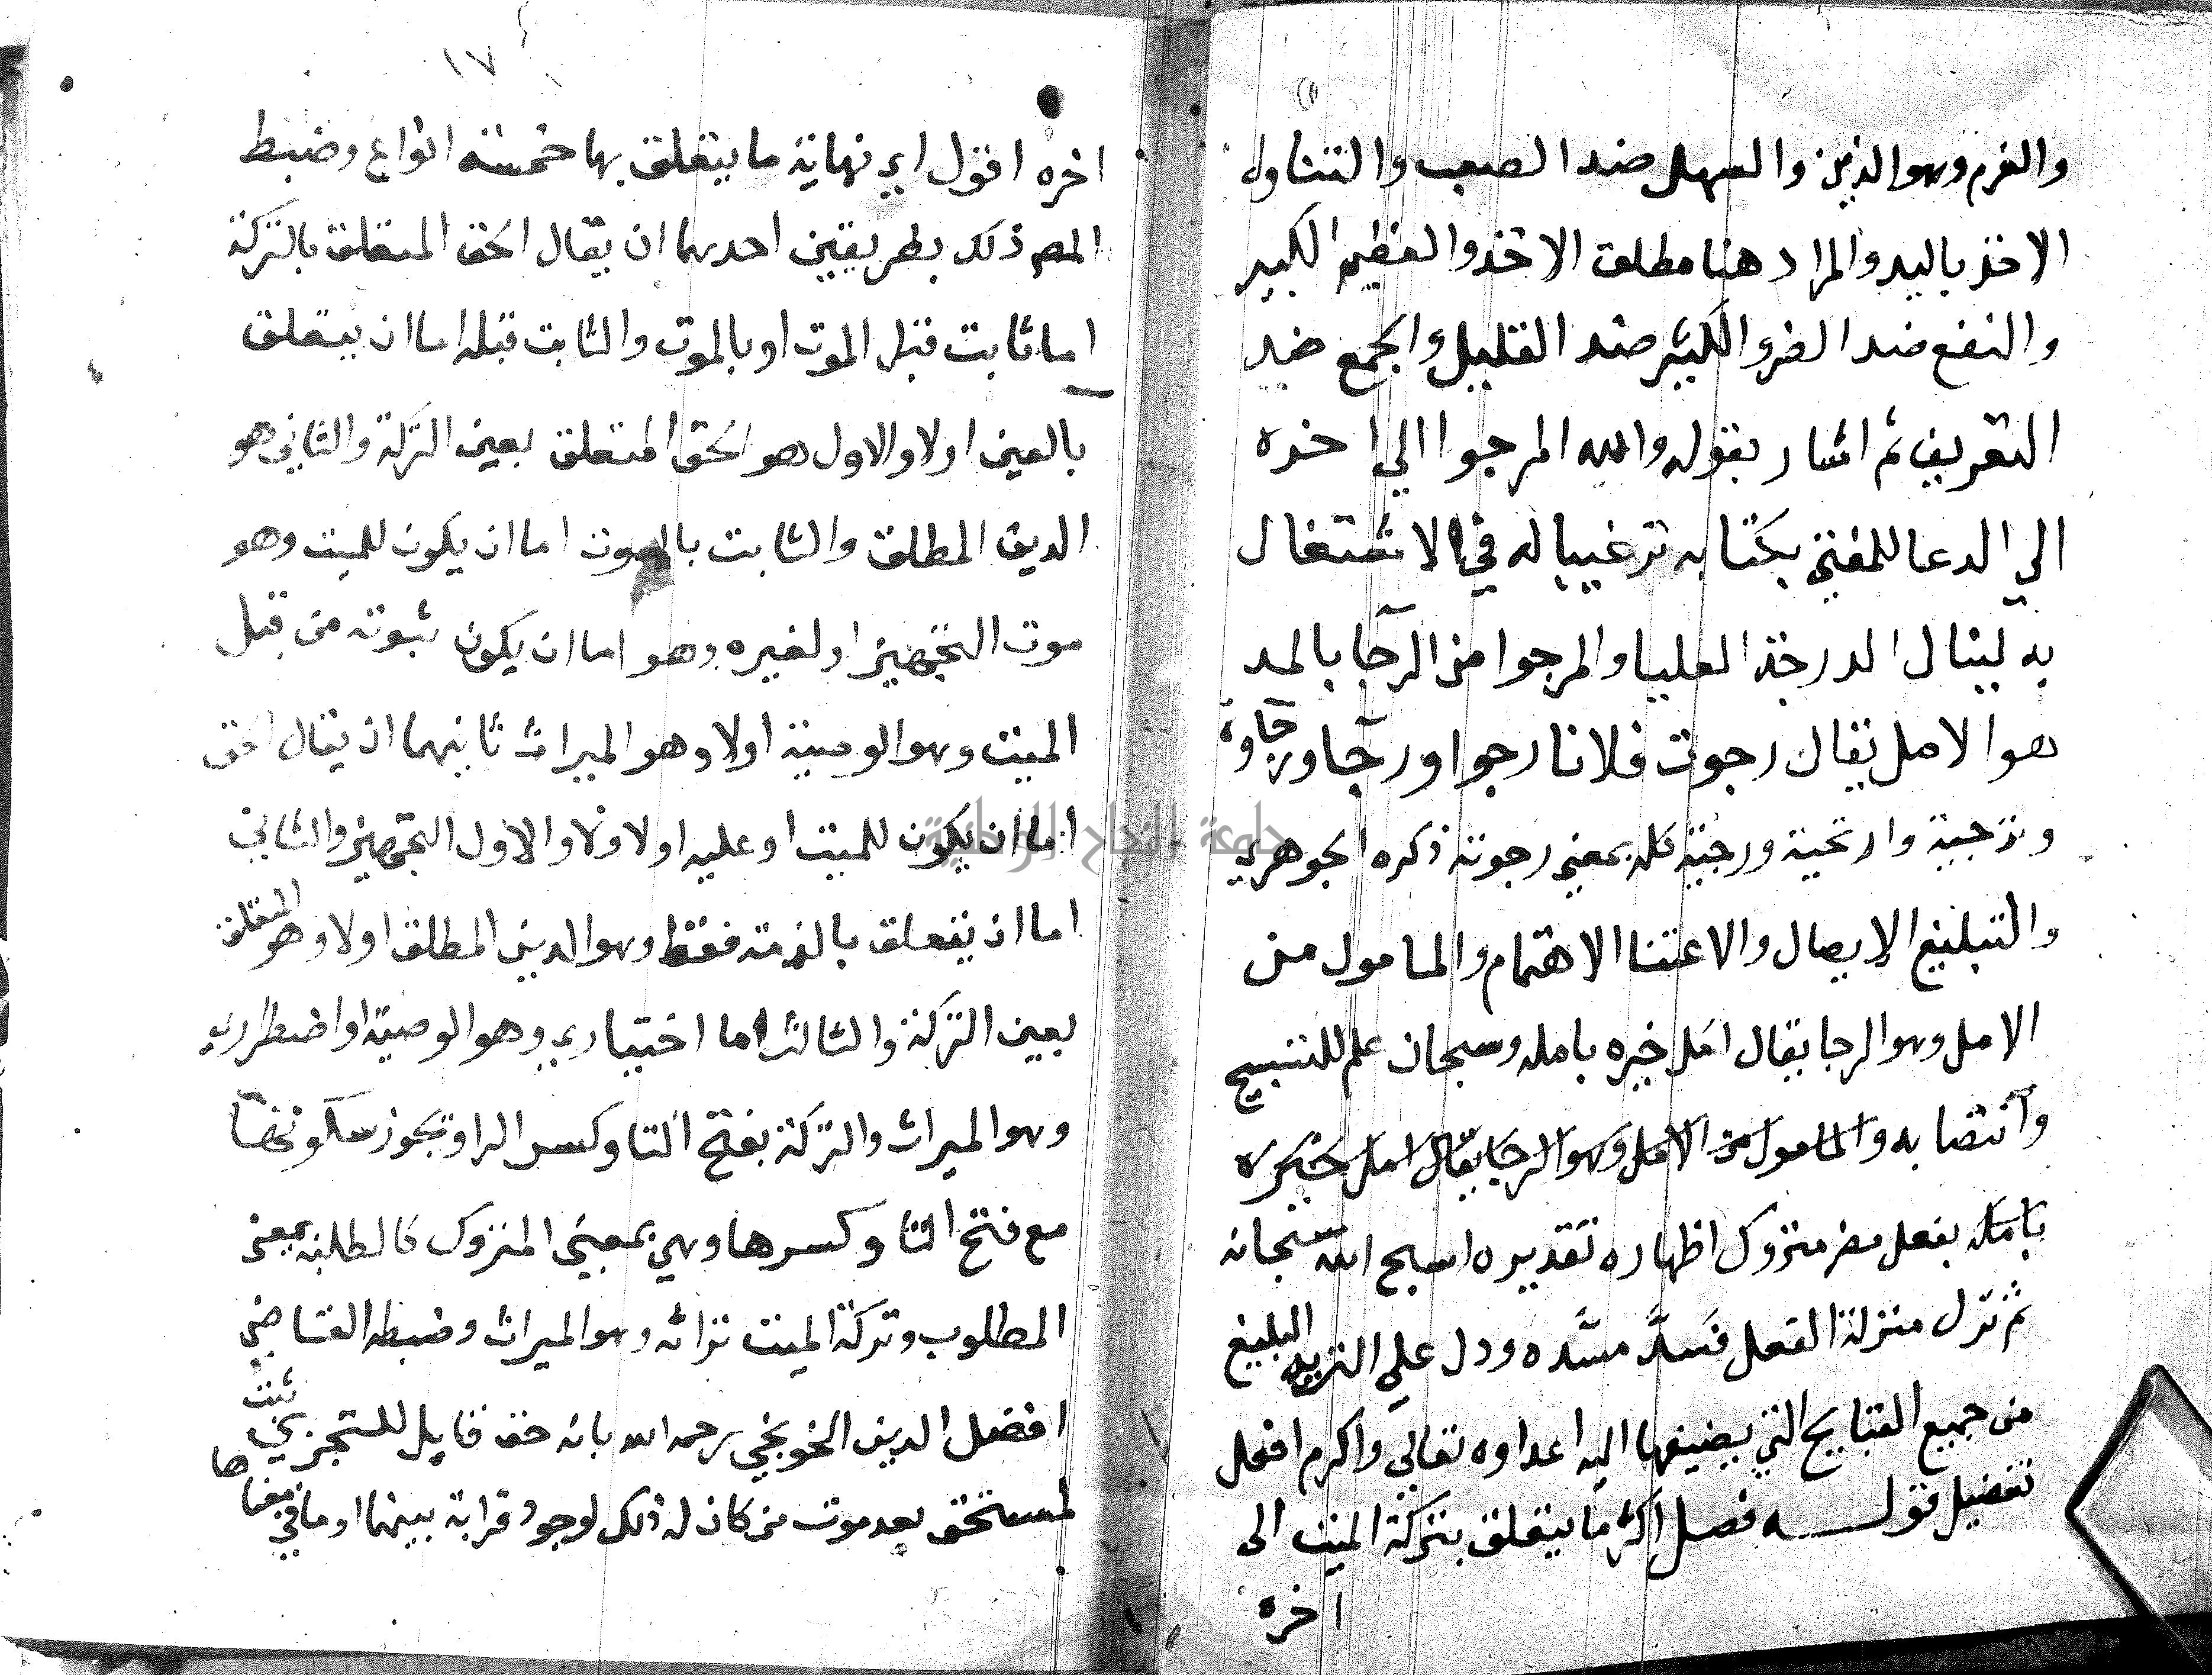 والغرم وهو الدين والسهل ضد الصعب والتناول
الاخذ باليد والمراد هنا مطلق الاخذ والعظيم الكبير
والنفع ضد الضر والكثير ضد القليل والجمع ضد
التفريق ثم اشار بقوله والله المرجوا الي اخره
الي الدعا للمعتني بكتابه ترغيبا له في الاشتغال
به لينال الدرجة العليا والمرجوا من الرجا بالمد
هو الامل يقال رجوت فلانا رجوا ورجا ورجاوة
وترجيته وارتجيته ورجيته كله بمعني رجوته ذكره الجوهري
والتبليغ الايصال والاعتنا الاهتمام والمامول من
الامل وهو الرجا يقال امل خيره يامله وسبحان علم للتسبيح
وانتصابه والمامول من الامل وهو الرجا يقال امل خيره
يامله بفعل مضمر متروك اظهاره تقديره اسبح الله سبحانه
ثم نزل منزلة الفعل فسد مسده ودل علي التنزيه البليغ
من جميع القبايح التي يضيفها اليه اعداوه تعالي واكرم افعل
تفضيل قوله فصل اكثر ما يتعلق بتركة الميت الي
اخره
١٧
اخره اقول اي نهاية ما يتعلق بها خمسة انواع وضبط
المص ذلك بطريقين احدهما ان يقال الحق المتعلق بالتركة
اما ثابت قبل الموت او بالموت والثابت قبله اما ان يتعلق
بالعين اولا والاول هو الحق المتعلق بعين التركة والثاني هو
الدين المطلق والثابت بالموت اما ان يكون للميت وهو
موت التجهيز او لغيره وهو اما ان يكون ثبوته من قبل
الميت وهو الوصية اولا وهو الميراث ثانيهما ان يقال الحق
اما ان يكون للميت او عليه اولا ولا والاول التجهيز والثاني
اما ان يتعلق بالذمة فقط وهو الدين المطلق اولا وهو المتعلق
بعين التركة والثالث اما اختياري وهو الوصية او اضطراري
وهو الميراث والتركة بفتح التا وكسر الرا ويجوز سكونها
مع فتح التا وكسرها وهي بمعني المتروك كالطلبة بمعني
المطلوب وتركة الميت تراثه وهو الميراث وضبطه القاضي
افضل الدين الخونجي رحمه الله بانه حق قابل للتجزي يثبت
لمستحق بعد موت من كان له ذلك لوجود قرابة بينهما او ما في معناها
جامعة النجاح الوطنية